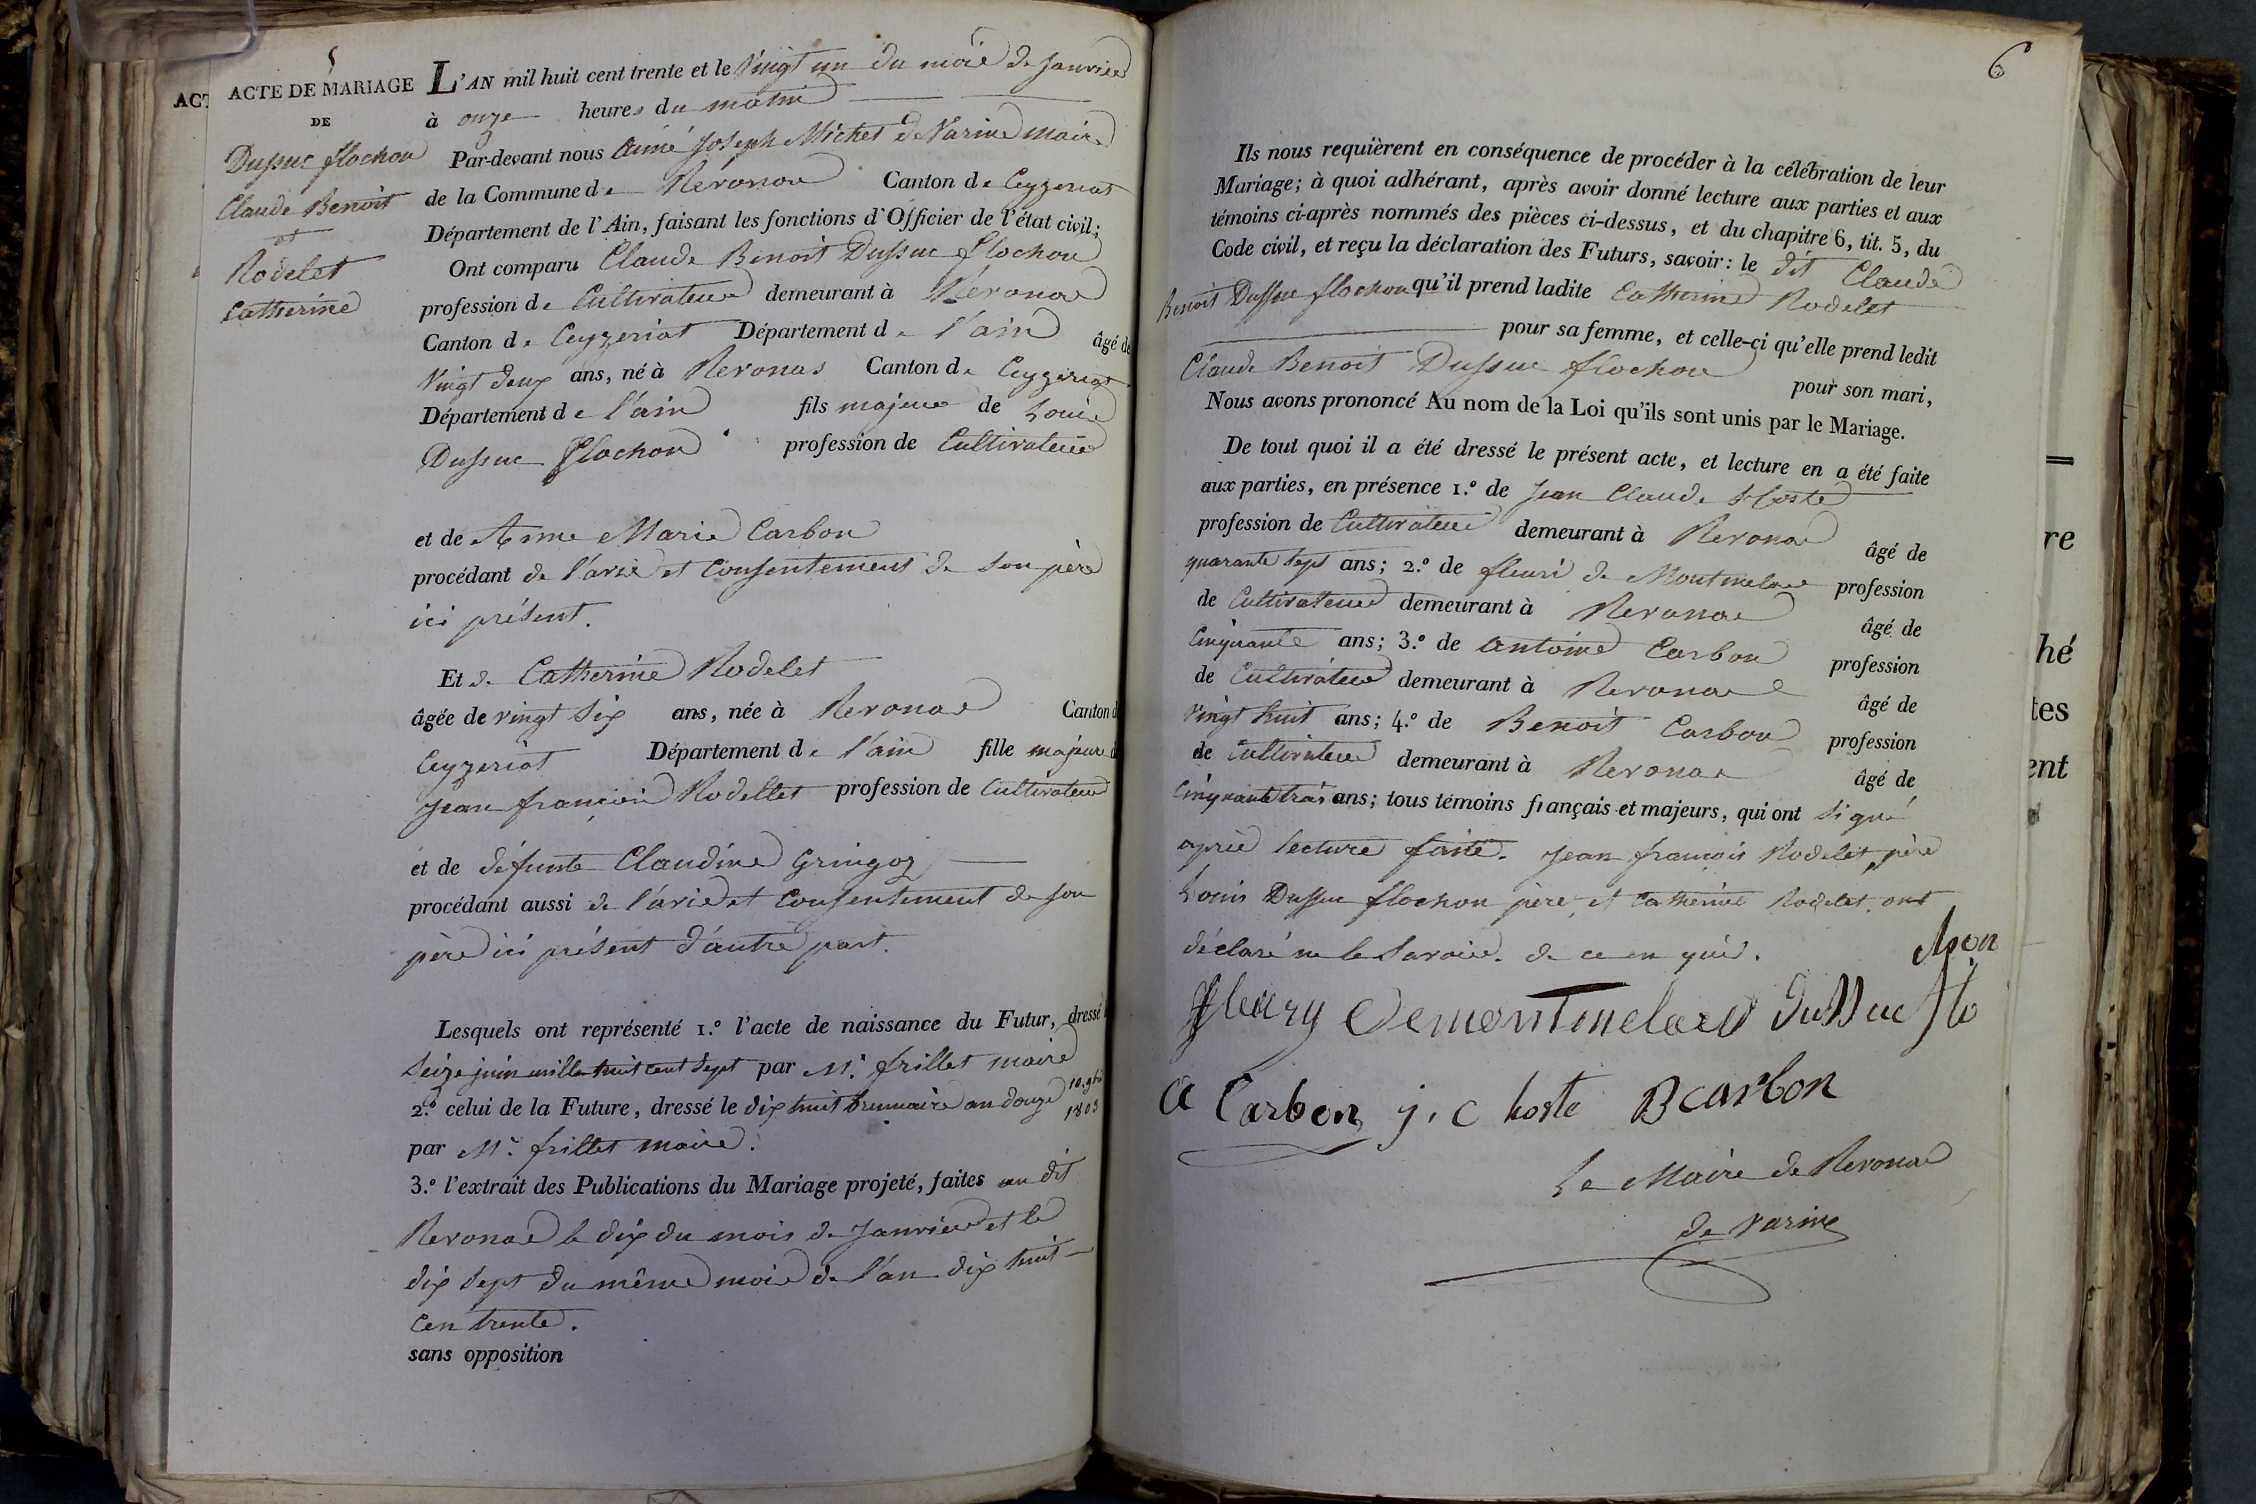 5
ACTE DE MARIAGE
DE
Dussuc flochon
Claude Benoit
et
Rodelet
Catherine
ACT
L'AN mil huit cent trente et le vingt un du mois de Janvier
à onze heures du matin
Par-devant nous Aimé Joseph Michel de Varine maire
de la Commune de Revonas Canton de Ceyzeriat
Département de l'Ain, faisant les fonctions d'Officier de l'état civil;
Ont comparu Claude Benoit Dussuc flochon
profession de Cultivateur demeurant à Revonas
Canton de Ceyzeriat Département de l'ain âgé de
vingt deux ans, né à Revonas Canton de Ceyzeriat
Département de l'ain fils majeur de Louis
Dussuc flochon profession de Cultivateur
et de Anne Marie Carbon
procédant de l'avis et consentement de son père
ici présent.
Et de Catherine Rodelet
âgée de vingt six ans, née à Revonas Canton d
Ceyzeriat Département de l'ain fille majeure d
Jean françois Rodellet profession de Cultivateur
et de défunte Claudine Gringoz
procédant aussi de l'avis et consentement de son
père ici présent d'autre part.
Lesquels ont représenté 1.º l'acte de naissance du Futur, dressé l
seize juin mille huit cent sept par Mr. frillet maire
2.º celui de la Future, dressé le dix huit brumaire an douze 10. 9bre 1803
par Mr. frillet maire.
3.º l'extrait des Publications du Mariage projeté, faites au dit
Revonas le dix du mois de Janvier et le
dix sept du même mois de l'an dix huit
cen trente.
sans opposition
6
Ils nous requièrent en conséquence de procéder à la célébration de leur
Mariage; à quoi adhérant, après avoir donné lecture aux parties et aux
témoins ci-après nommés des pièces ci-dessus, et du chapitre 6, tit. 5, du
Code civil, et reçu la déclaration des Futurs, savoir: le dit Claude
Benoit Dussuc flochon qu'il prend ladite Catherine Rodelet
pour sa femme, et celle-ci qu'elle prend ledit
Claude Benoit Dussuc flochon pour son mari,
Nous avons prononcé Au nom de la Loi qu'ils sont unis par le Mariage.
De tout quoi il a été dressé le présent acte, et lecture en a été faite
aux parties, en présence 1.º de Jean Claude hoste
profession de Cultivateur demeurant à Revonas âgé de
quarante sept ans; 2.º de fleuri de Montmelas profession
de Cultivateur demeurant à Revonas âgé de
Cinquante ans; 3.º de antoine Carbon profession
de Cultivateur demeurant à Revonas âgé de
vingt huit ans; 4.º de Benoit Carbon profession
de Cultivateur demeurant à Revonas âgé de
Cinquante trois ans; tous témoins français et majeurs, qui ont signé
après lecture faite. Jean françois Rodelet père
Louis Dussuc flochon père, et Catherine Rodelet, ont
déclaré ne le savoir. de ce en quis.
fleury Demontmelard duSSuc flo
chon
a Carbon j. c hoste B carbon
Le Maire de Revonas
de Varine
re
hé
tes
ent